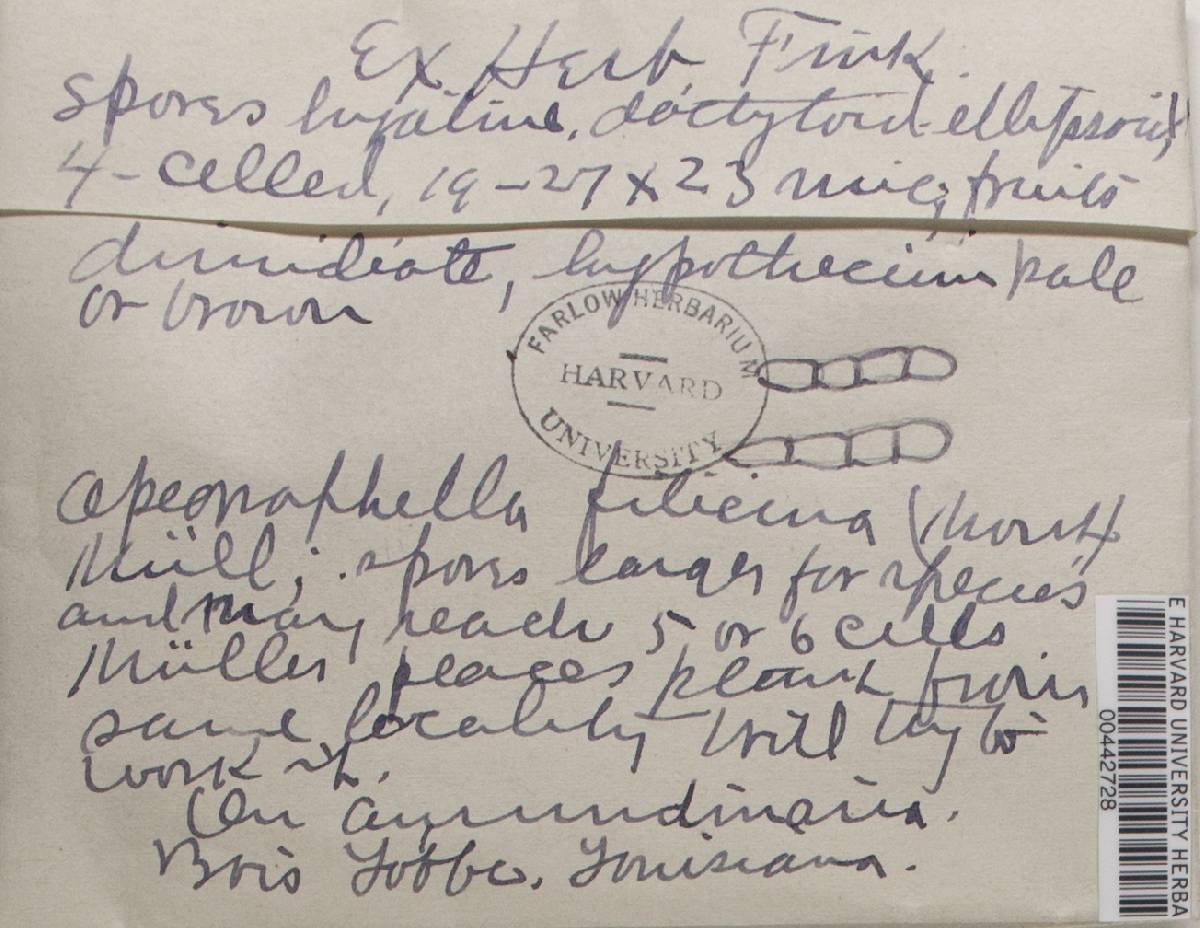 Ex Herb Fink.
Spores hyaline, dactyloid-ellipsoid,
4-celled, 19-27 x 23 mic; fruits
dimidiate, hypothecium pale
or brown
FARLOW HERBARIUM
HARVARD
UNIVERSITY
filicina (Mont)
Müll; spores larger for species
and may reach 5 or 6 cells
Müller places plant from
same locality Will try to
work it.
On arundinaria.
Bois Louisiana.
E HARVARD UNIVERSITY HERBA
00442728